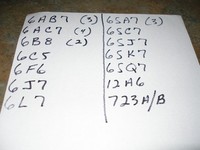 6AB7 (3)
6AC7 (4)
6B8 (2)
6C5
6F6
6J7
6L7
6SA7 (3)
6SC7
6SJ7
6SK7
6SQ7
12A6
723A/B